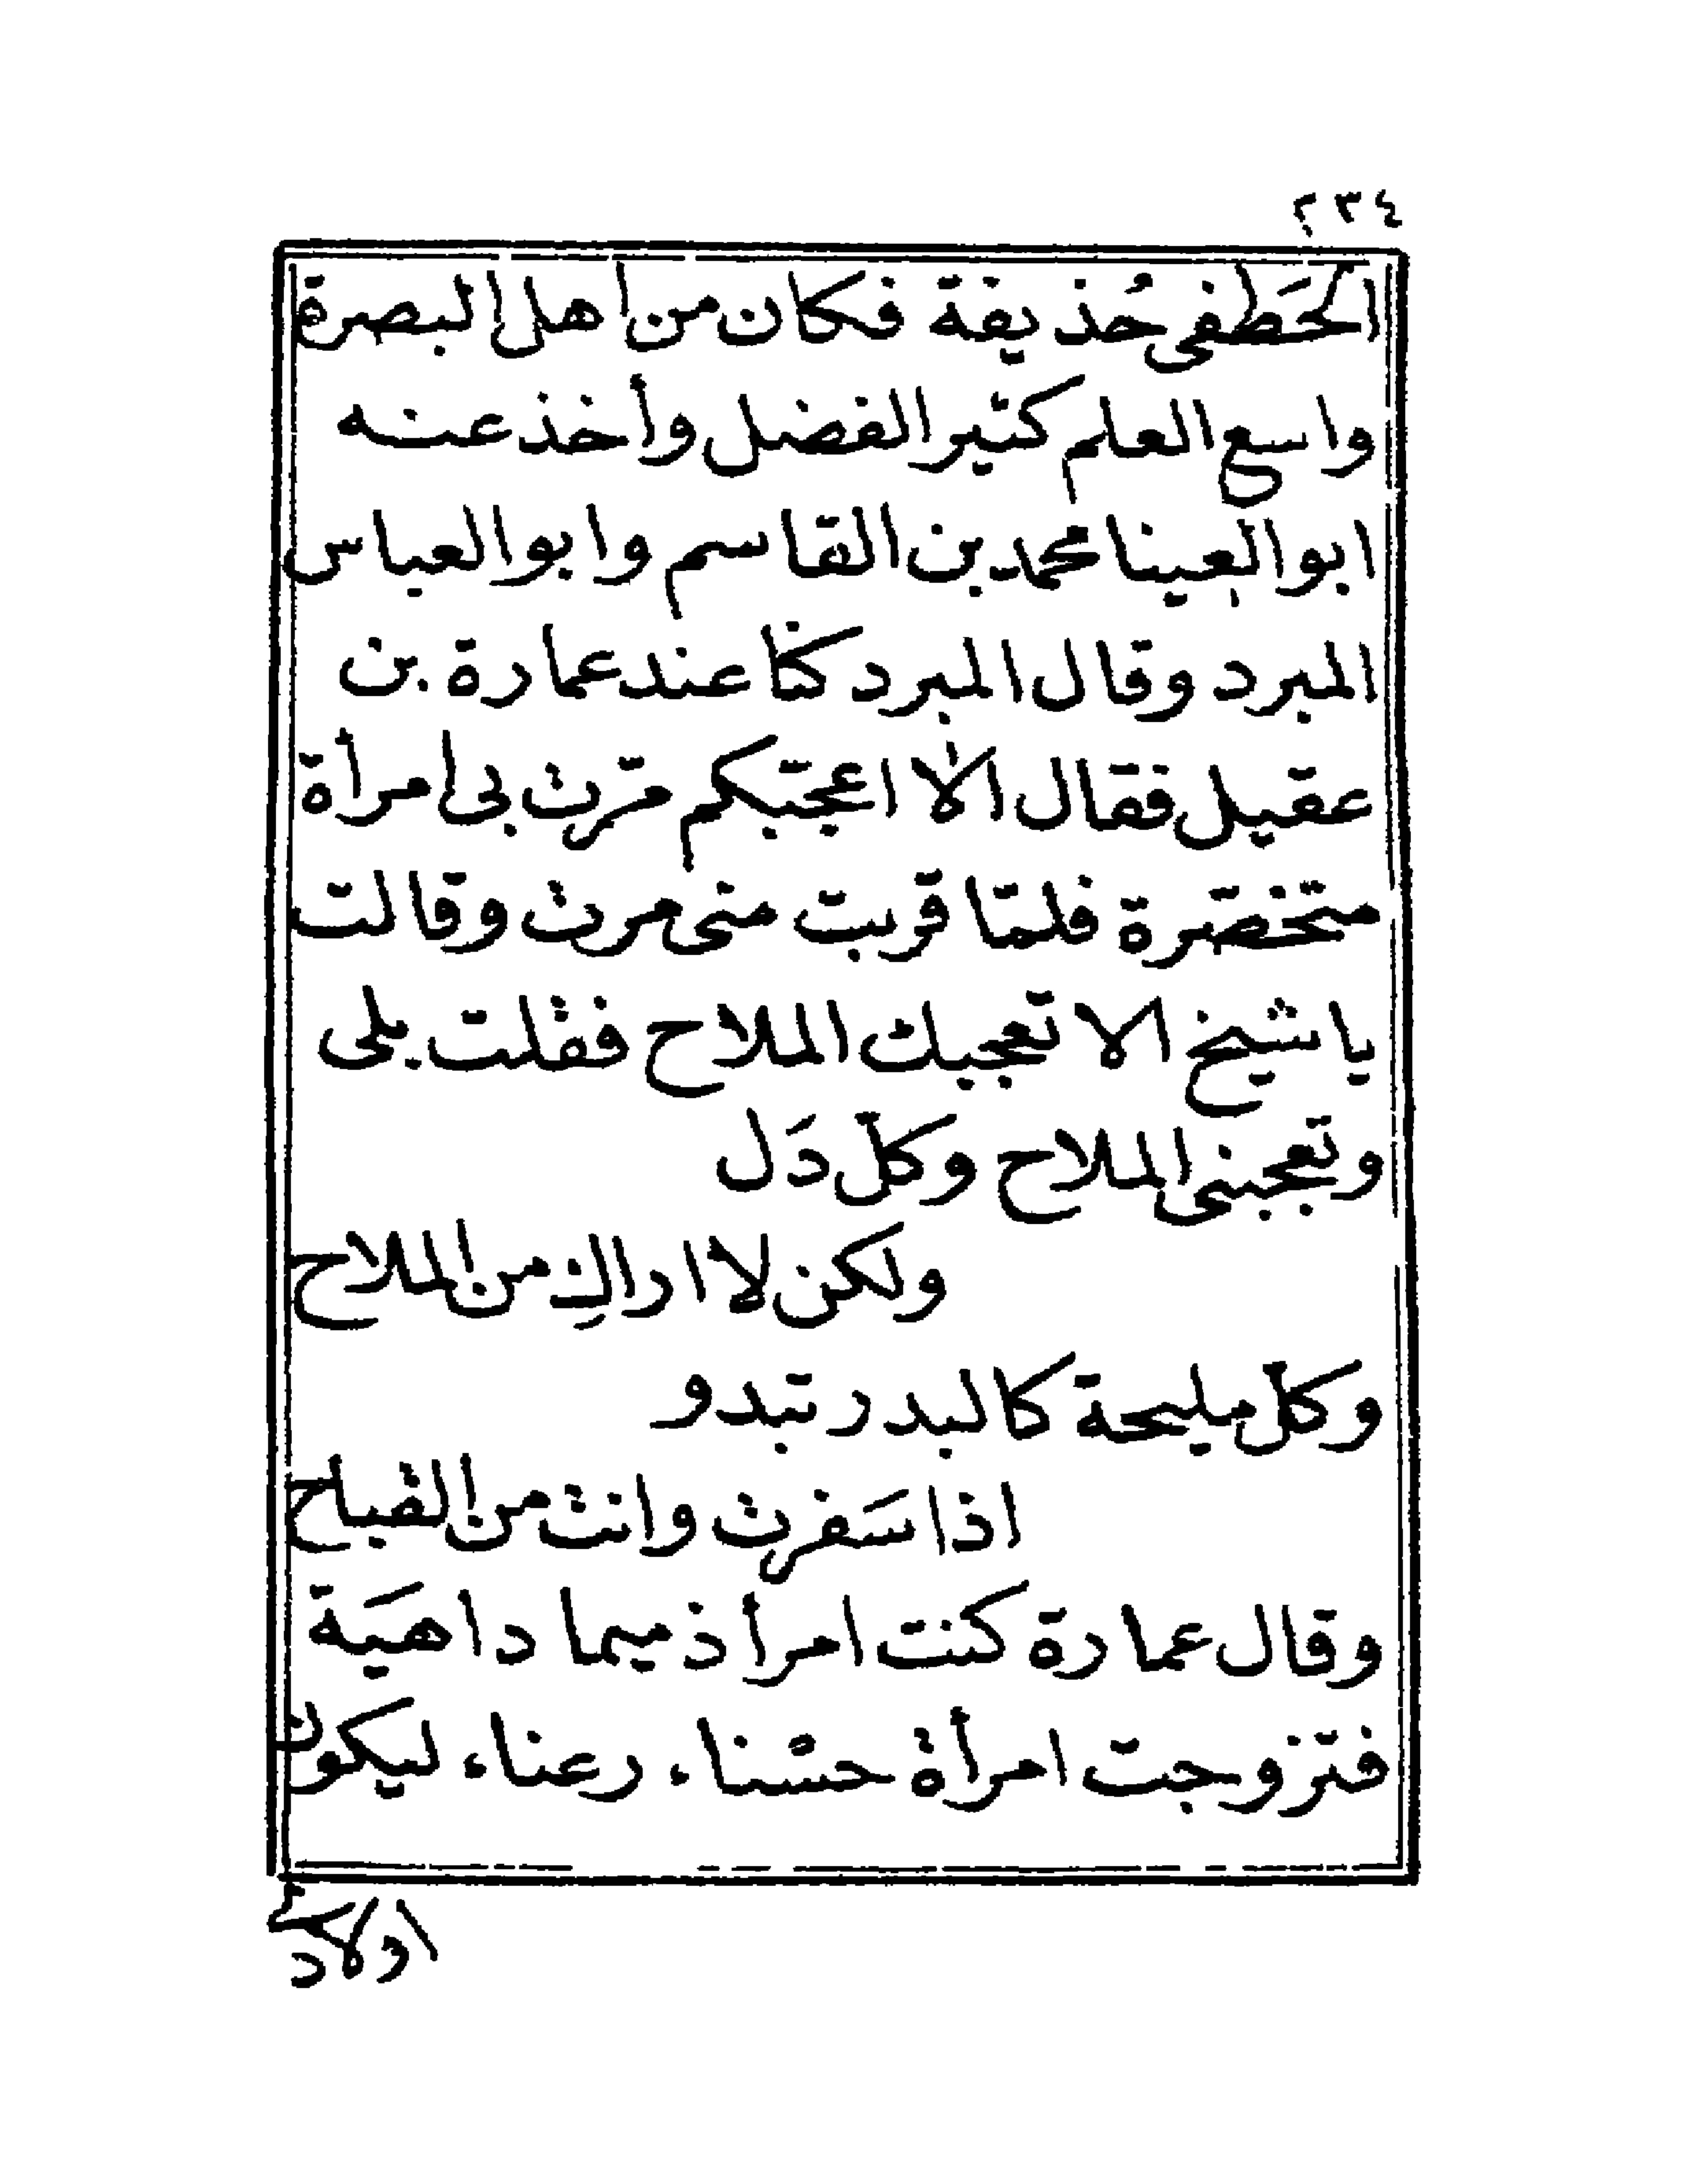 ٢٣٤
الخَطَفى حُذيفة فكان من اهل البصرة
واسع العلم كثير الفضل وأخذ عنه
ابو العينا محمد بن القاسم وابو العباس
المبرد وقال المبرد كنّا عند عمارة بن
عقيل فقال الا اعجّبكم مرّت بى امرأة
متخصّرة فلمّا قربت منى مرت وقالت
يا شيخ الا تعجبك الملاح فقلت بلى
وتعجبنى الملاح وكلّ دَل
ولكن لا اراكِ من الملاح
وكلّ مليحة كالبدر تبدو
اذا سَفرت وانت من القباح
وقال عمارة كنت امرأ ذميما داهيَة
فتزوجت امرأة حسْناء رعناء ليكون
اولادى